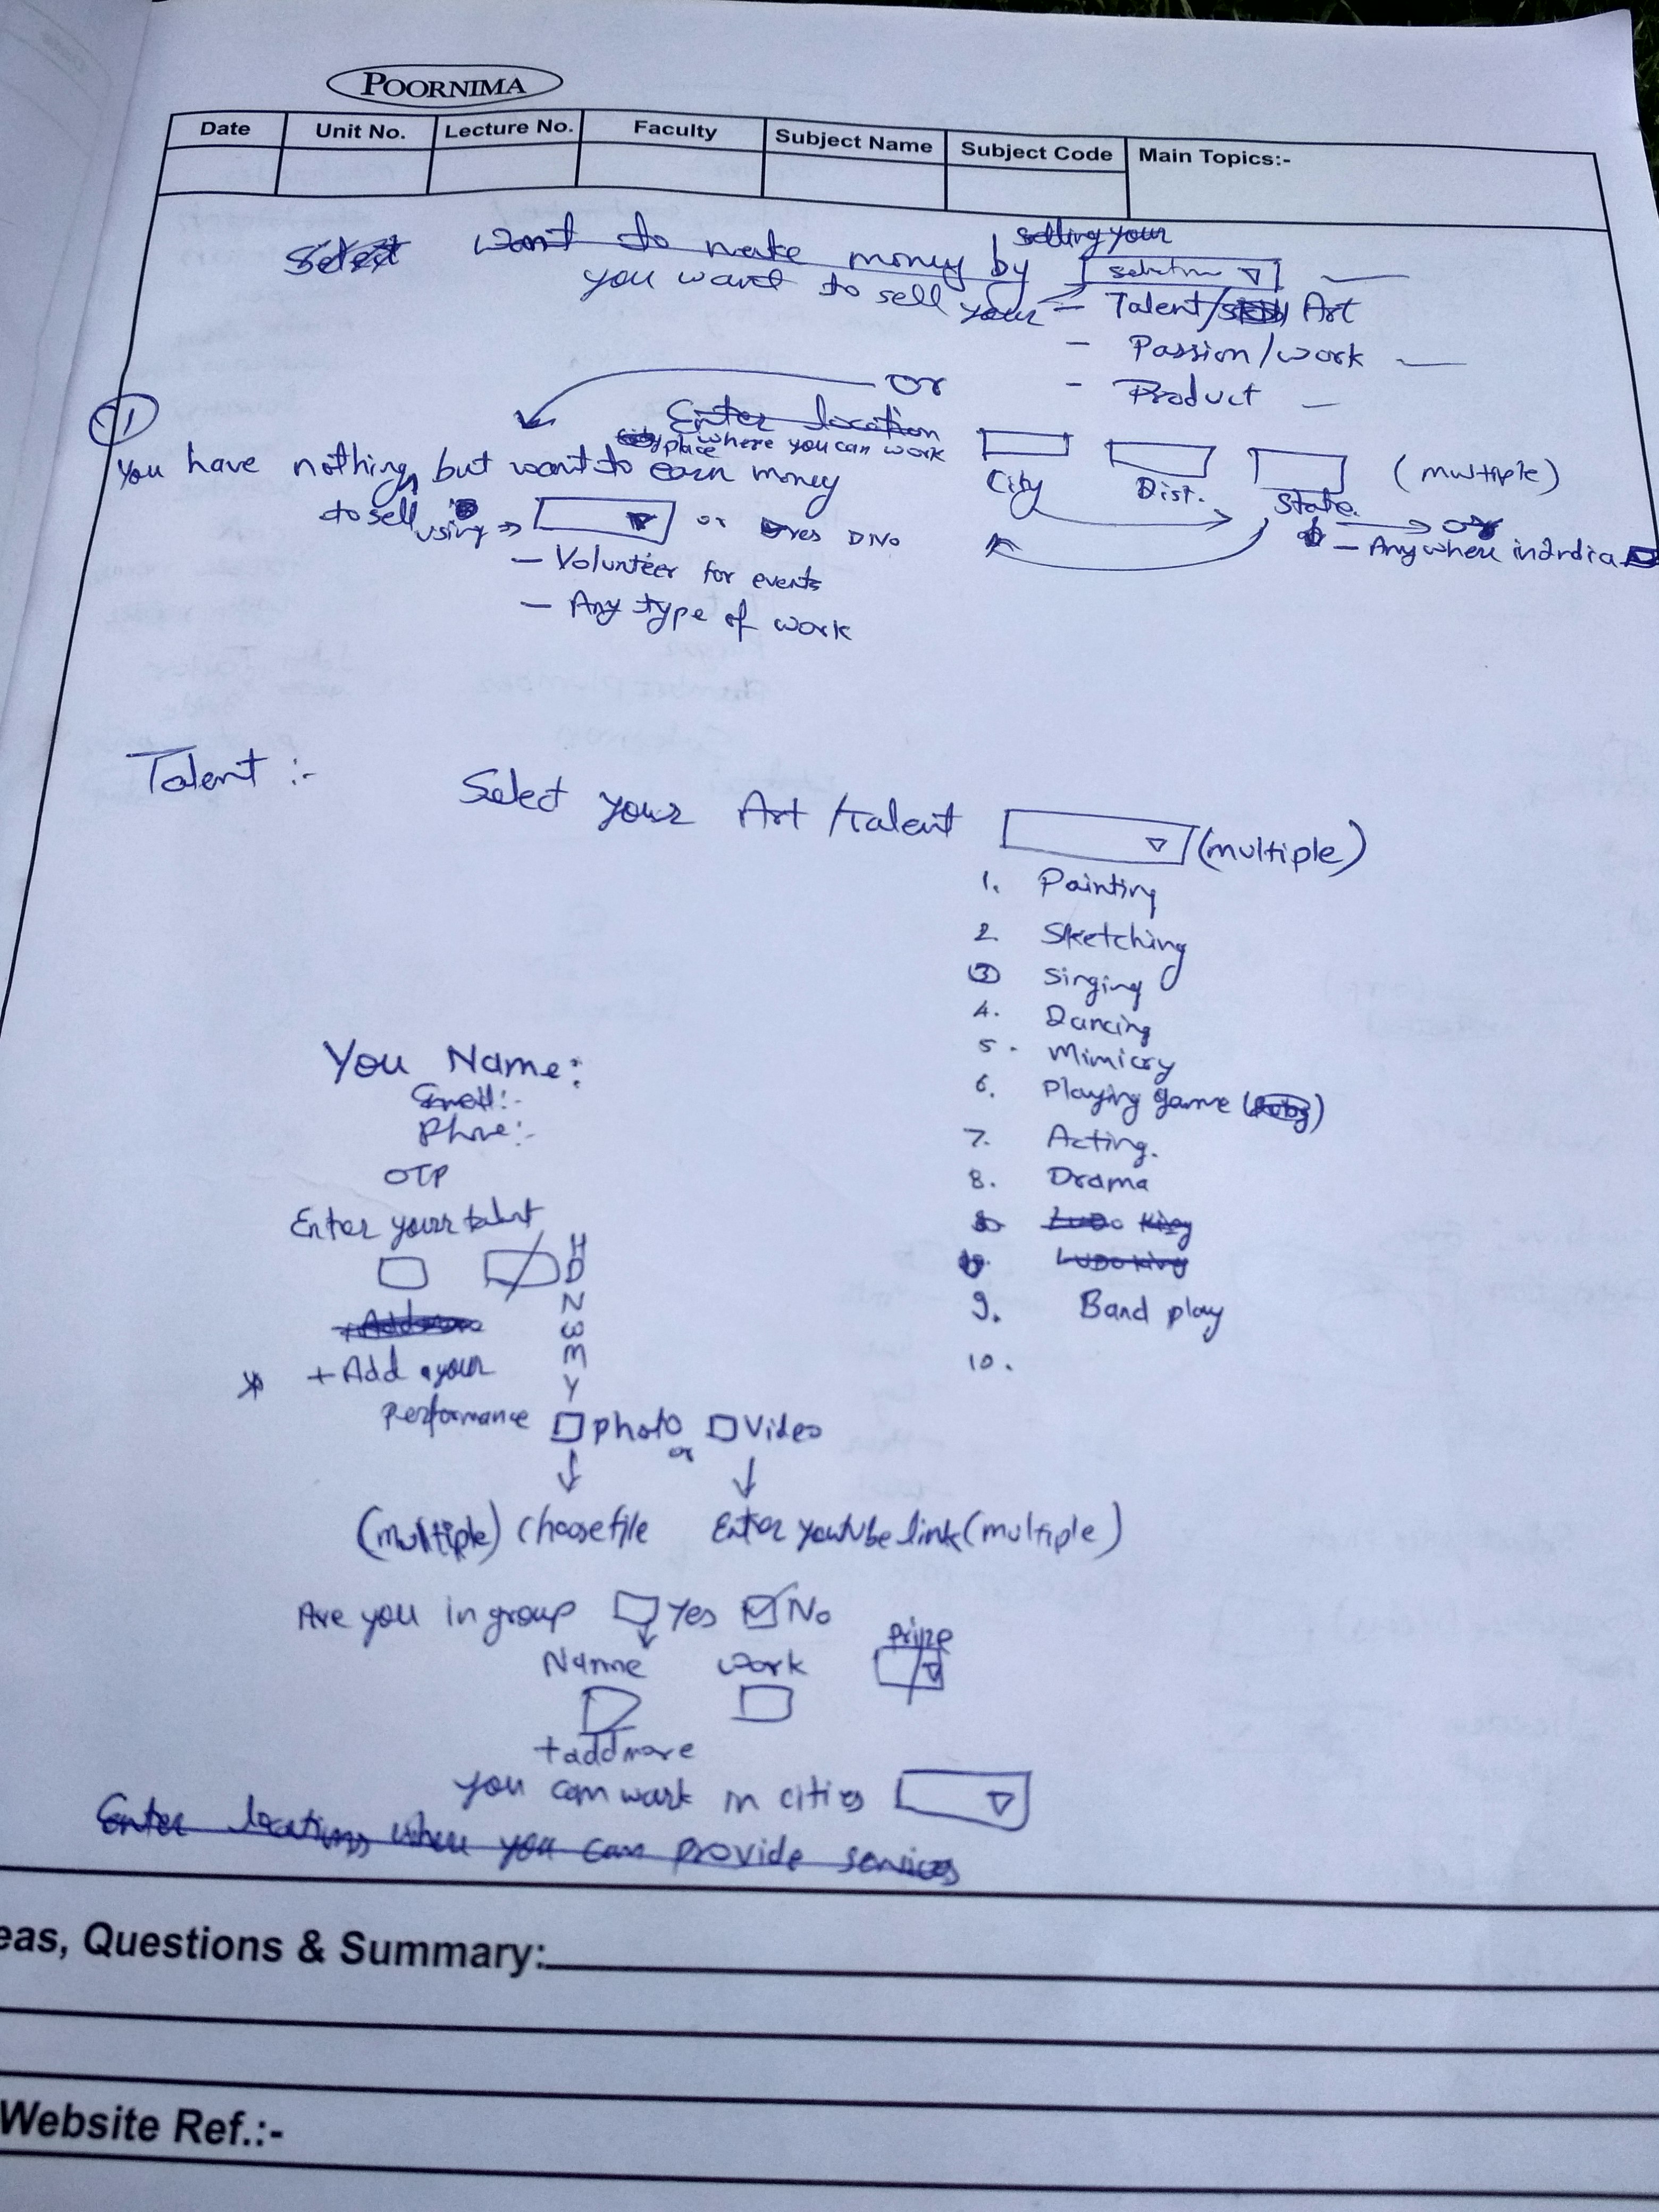 POORNIMA
Date Unit No. Lecture No. Faculty Subject Name Subject Code Main Topics:-
selling your
Select want to make money by
you want to sell your
Talent/ Art
- Passion/work
- Product
or
1
Enter location
place where you can work
You have nothing, but want to earn money
to sell using ⇒ or yes No
City Dist. State (multiple)
or
- Anywhere in India
- Volunteer for events
- Any type of work
Talent :-
Select your Art /talent (multiple)
1. Painting
2 Sketching
3 Singing
4. Dancing
5. Mimicry
6. Playing game
7. Acting.
8. Drama
Ludo King
Ludo king
9. Band play
10.
You Name:
Email:-
Phone:-
OTP
Enter your talent
H
D
N
3
M
Y
+ Add your
Performance photo or Video
(multiple) choose file Enter youtube link (multiple)
Are you in group Yes No
Name work prize
+ add more
you can work in cities
Enter locations where you can provide services
eas, Questions & Summary:
Website Ref.:-